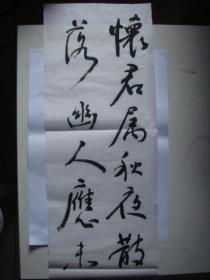 懷君属秋夜散
落幽人應未